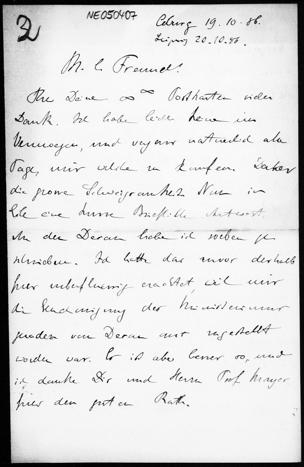 2
NE050407
Coburg 19.10.86.
Leipzig 20.10.86.
M. l. Freund!
Für Deine ∞ ∞ Postkarten vielen
Dank. Ich habe leider keine im
Vermoegen, und vergesse natuerlich alle
Tage, mir welche zu kaufen. Daher
die grosse Schweigsamkeit. Nun in
Eile eine kurze Antwort.
An den Decan habe ich soeben ge-
schrieben. Ich hatte das zuvor deshalb
fuer ueberfluessig erachtet weil mir
die Genehmigung des Ministeriums
gerade vom Decan erst zugestellt
worden war. Es ist aber besser so, und
ich danke Dir und Herrn Prof. Mayer
fuer den guten Rath.